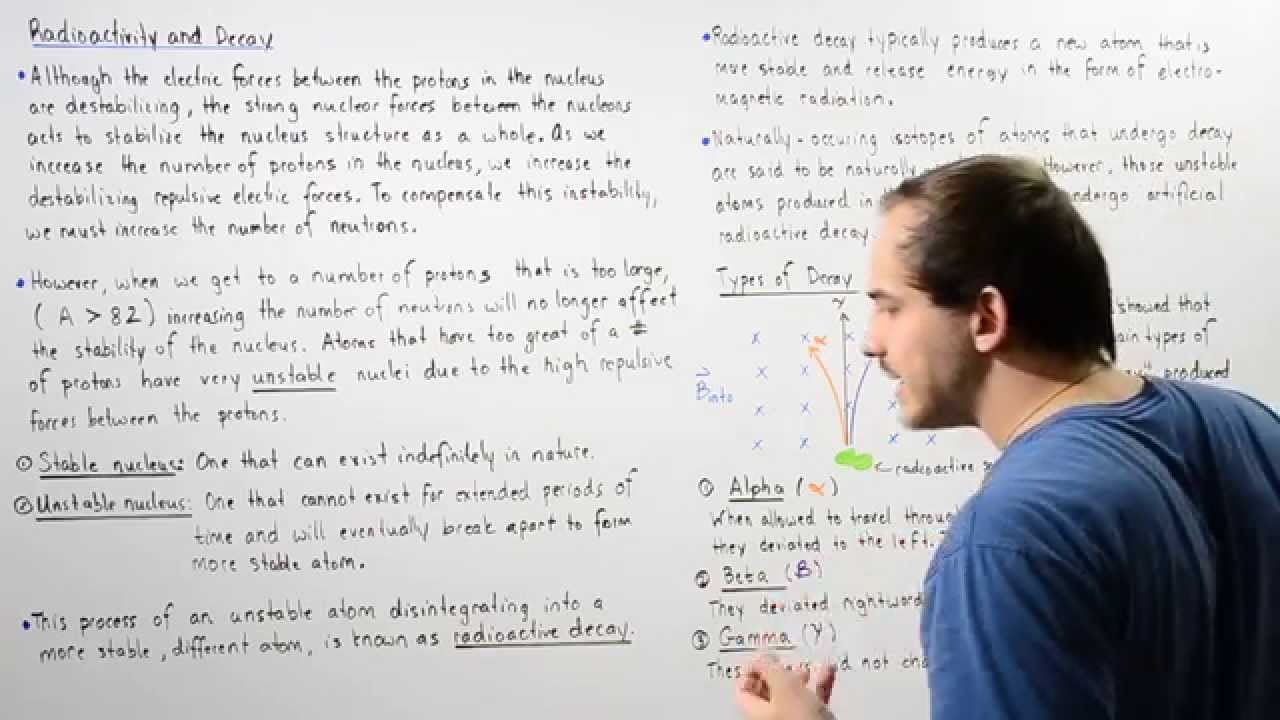 Radioactivity and Decay
• Although the electric forces between the protons in the nucleus
are destabilizing, the strong nuclear forces between the nucleons
acts to stabilize the nucleus structure as a whole. As we
increase the number of protons in the nucleus, we increase the
destabilizing repulsive electric forces. To compensate this instability,
we must increase the number of neutrons.
• However, when we get to a number of protons that is too large,
(A > 82) increasing the number of neutrons will no longer affect
the stability of the nucleus. Atoms that have too great of a #
of protons have very unstable nuclei due to the high repulsive
forces between the protons.
① Stable nucleus: One that can exist indefinitely in nature.
② Unstable nucleus: One that cannot exist for extended periods of
time and will eventually break apart to form
more stable atom.
• This process of an unstable atom disintegrating into a
more stable, different atom, is known as radioactive decay.
• Radioactive decay typically produces a new atom that is
more stable and release energy in the form of electro-
magnetic radiation.
• Naturally-occuring isotopes of atoms that undergo decay
are said to be naturally However, those unstable
atoms produced in undergo artificial
radioactive decay.
Types of Decay
showed that
types of
produced
γ
x x α x
B into
x x x
x x x x
x x x x
← radioactive
① Alpha (α)
When allowed to travel through
they deviated to the left.
② Beta (B)
They deviated rightward
③ Gamma (γ)
not